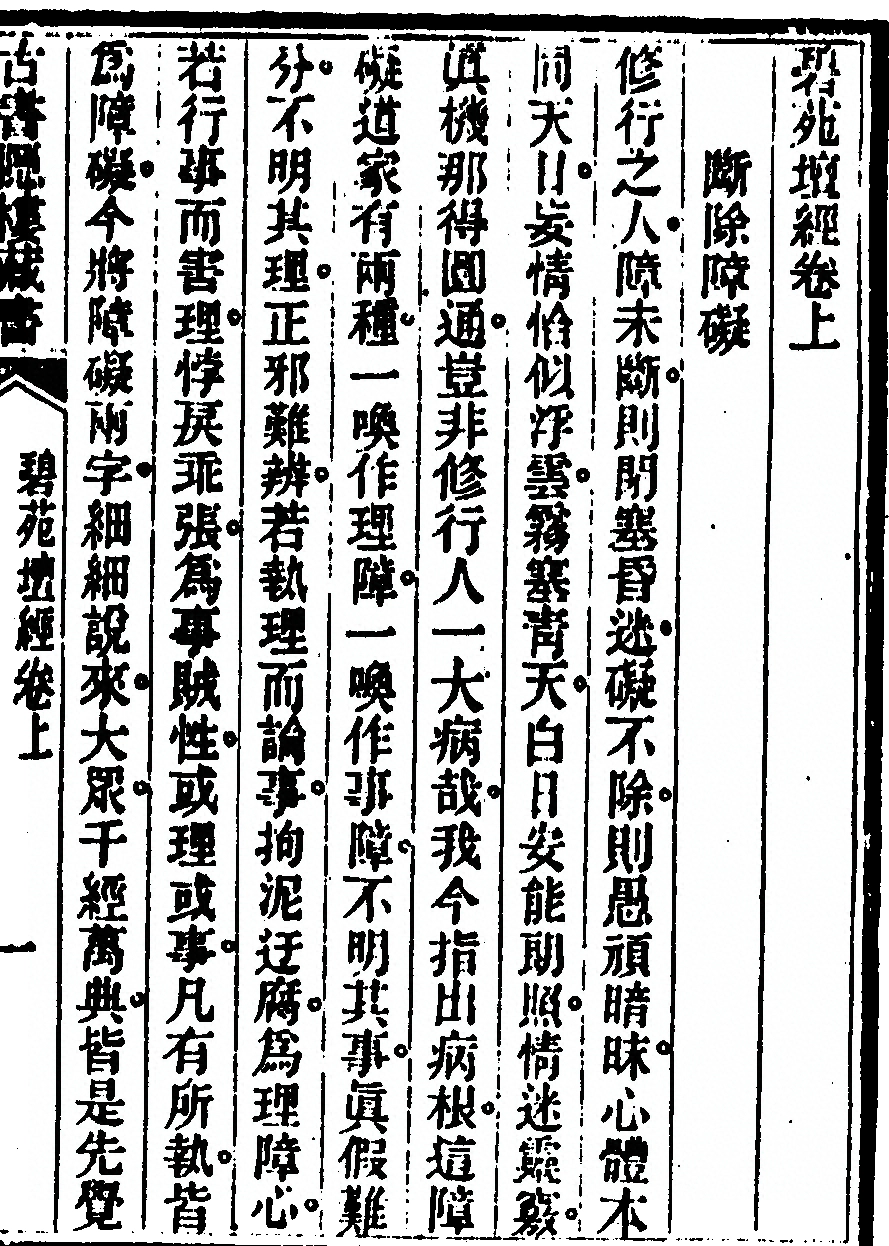 碧苑壇經卷上
斷除障礙
修行之人障未斷則閉塞昏迷礙不除則愚頑暗昧心體本
同天日妄情恰似浮雲霧塞靑天白日安能朗照情迷靈竅
眞機那得圓通豈非修行人一大病哉我今指出病根這障
礙道家有兩種一喚作理障一喚作事障不明其事眞假難
分不明其理正邪難辨若執理而論事拘泥迂腐爲理障心
若行事而害理悖戾乖張爲事賊性或理或事凡有所執皆
爲障礙今將障礙兩字細細說來大眾千經萬典皆是先覺
古書隱樓藏書
碧苑壇經卷上
一